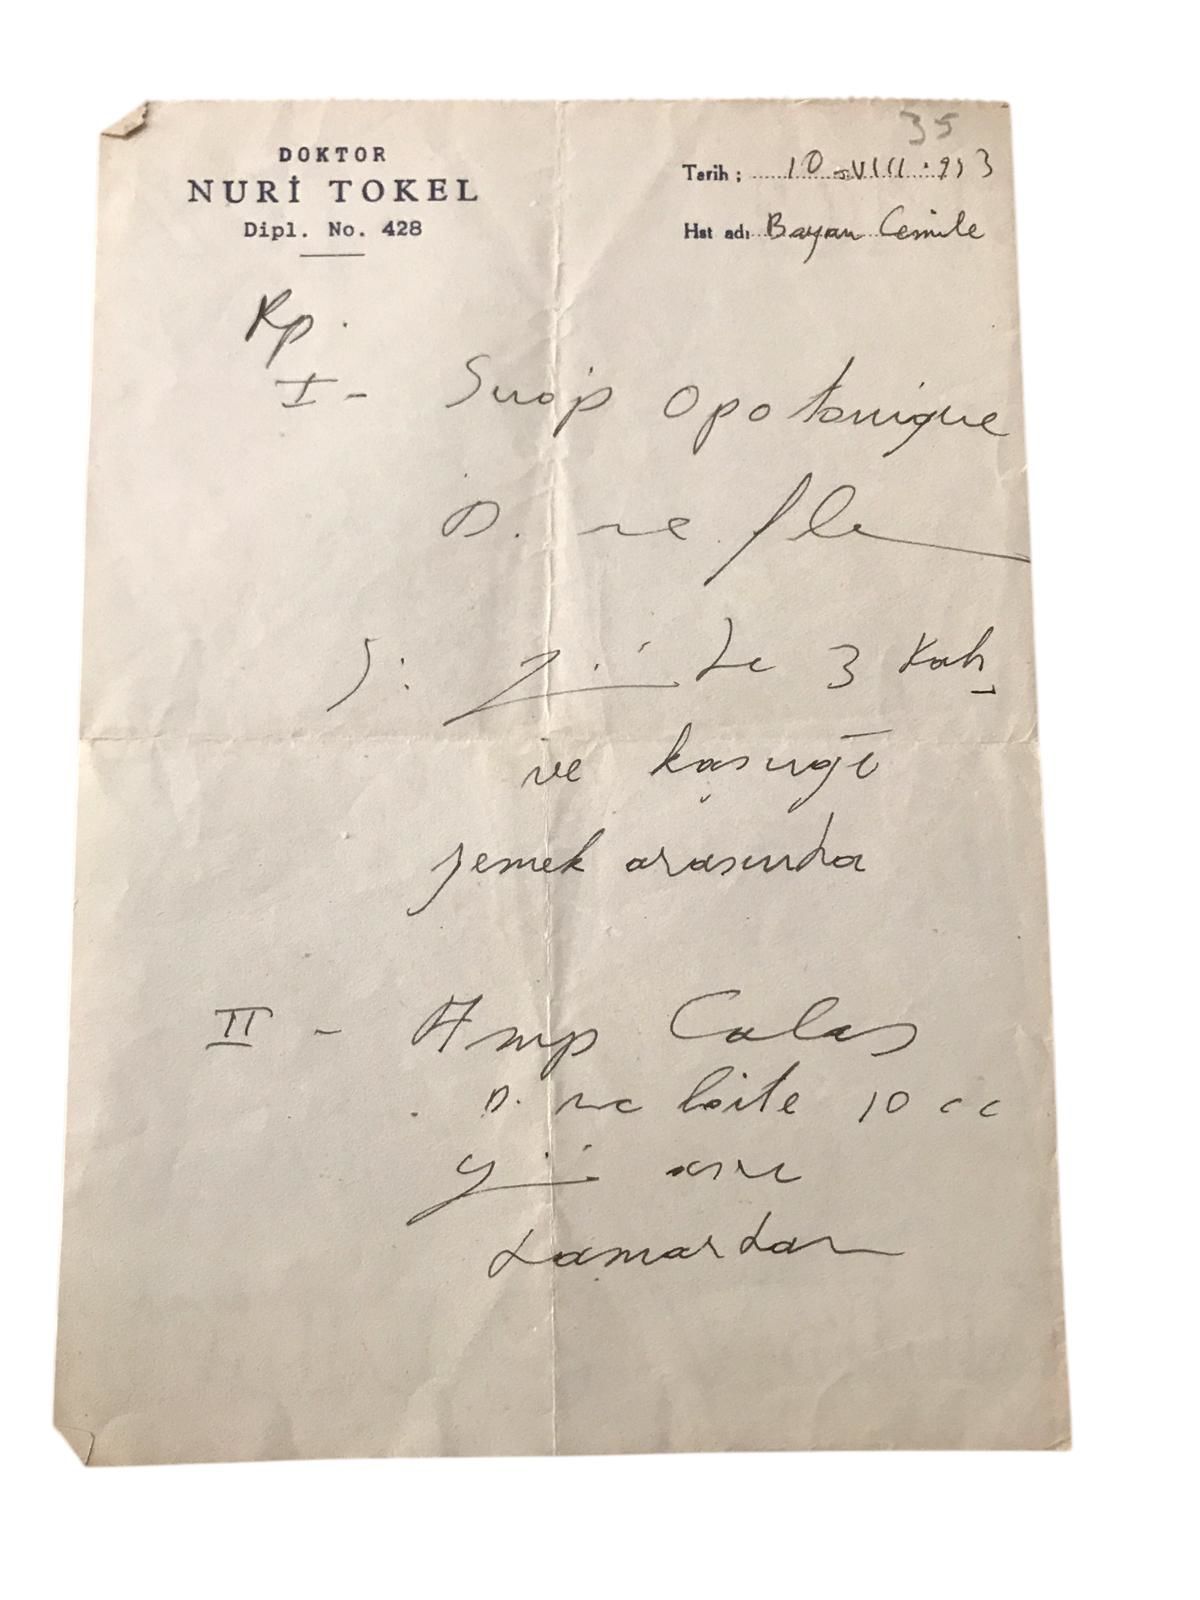 35
DOKTOR
NURİ TOKEL
Dipl. No. 428
Tarih ; 10-VIII.953
Hst adı Bayan Cemile
Rp.
I - Sirop Opotonique
D. ne fl
S: de 3 Kah
ve kaşığı
yemek arasında
II - Amp Calas
D. ne boite 10 cc
damardan